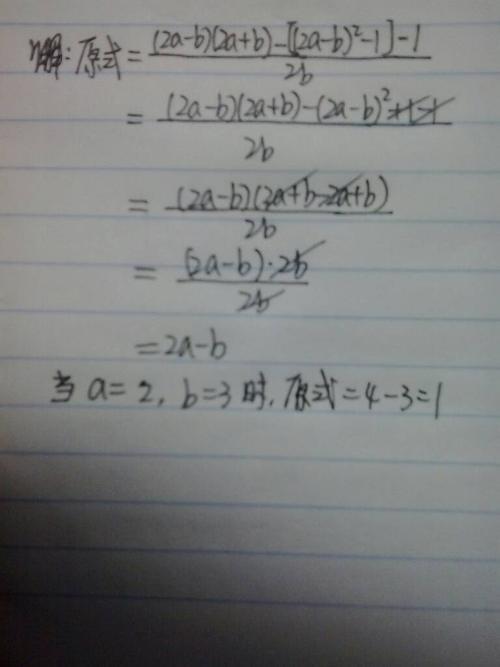 解:原式=((2a-b)(2a+b)-[(2a-b)²-1]-1)/2b
=((2a-b)(2a+b)-(2a-b)²+1-1)/2b
=((2a-b)(2a+b-2a+b))/2b
=((2a-b)·2b)/2b
=2a-b
当a=2,b=3时,原式=4-3=1